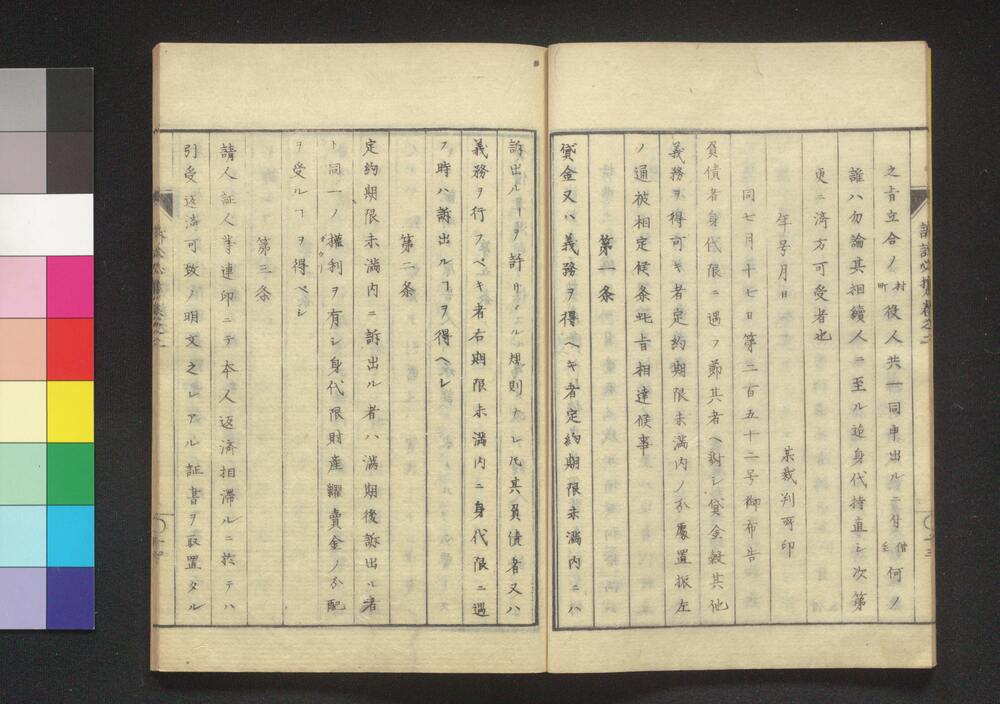 之旨立合ノ村町役人共一同申出ルニ付借主何ノ
誰ハ勿論其相續人ニ至ル迄身代持直シ次第
更ニ済方可受者也
年号月日
某裁判所印
同七月十七日第二百五十二号御布告
負債者身代限ニ遇フ節其者ヘ対シ貸金穀其他
義務ヲ得可キ者定約期限未満内ノ分處置振左
ノ通被相定候条此旨相達候事
第一条
貸金又ハ義務ヲ得ヘキ者定約期限未満内ニハ
訴出ルヿヲ許サヽルハ規則ナレ𪜈其負債者又ハ
義務ヲ行フベキ者右期限未満内ニ身代限ニ遇
フ時ハ訴出ルヿヲ得ヘシ
第二条
定約期限未満内ニ訴出ル者ハ満期後訴出ル者
ト同一ノ權利ヲ有シ身代限財産糶賣金ノ分配
ヲ受ルヿヲ得ベシ
第三条
請人証人等連印ニテ本人返済相滞ルニ於テハ
引受返済可致ノ明文之レアル証書ヲ取置タル